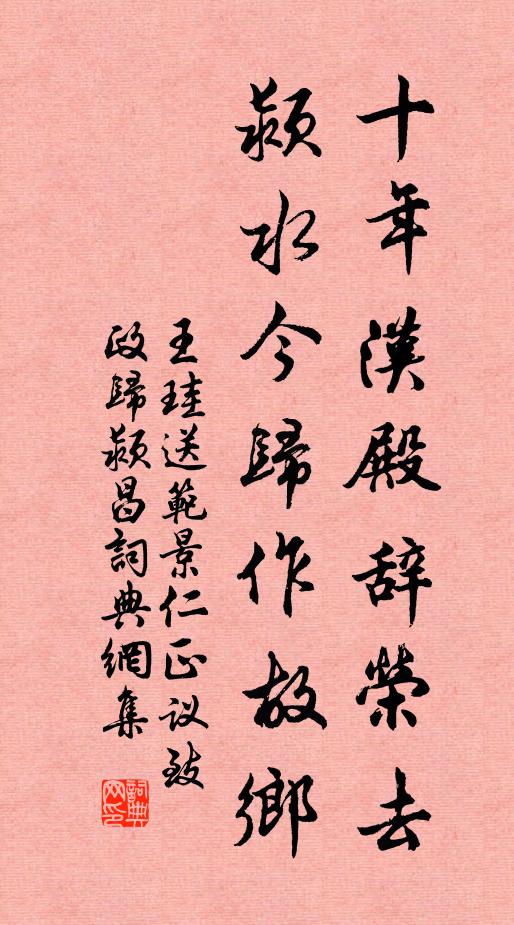 十年漢殿辞榮去
潁水今歸作故鄉
王珪送範景仁正议致
政歸潁昌詞典網集
詞典網印